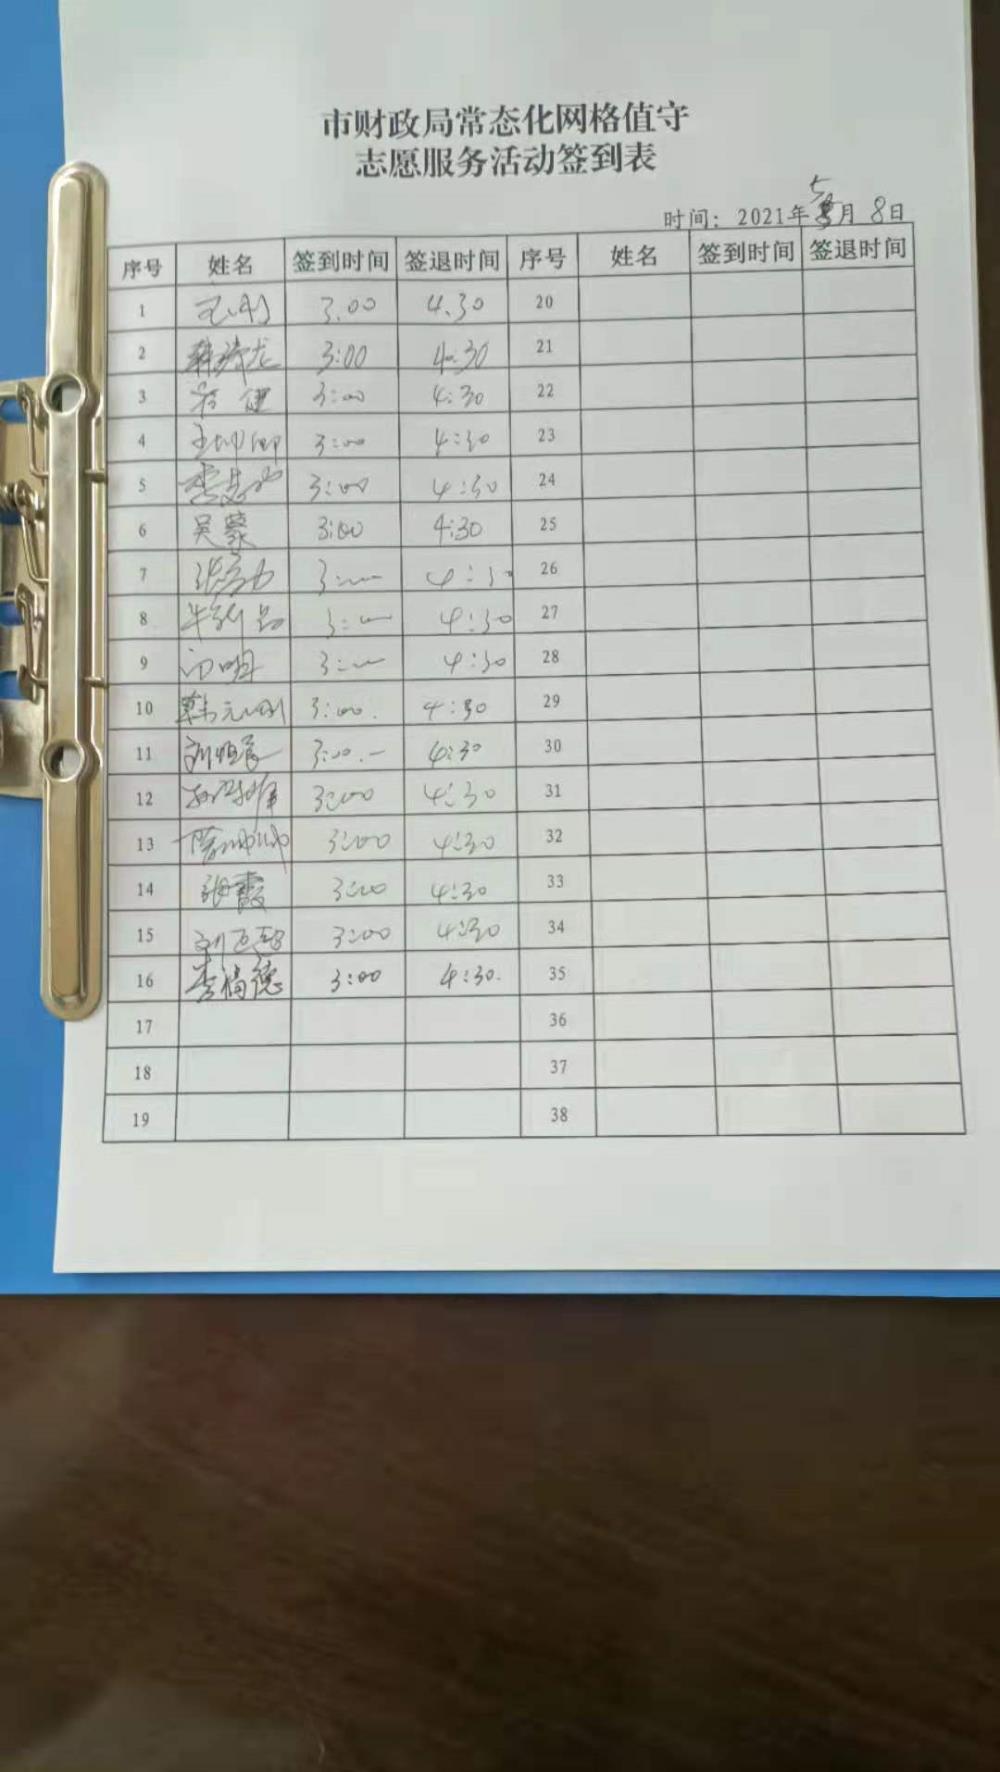 市财政局常态化网格值守
志愿服务活动签到表
时间: 2021年5月8日
序号 姓名 签到时间 签退时间 序号 姓名 签到时间 签退时间
1 王刚 3.00 4.30 20
2 韩琦龙 3:00 4:30 21
3 健 3:00 4:30 22
4 3:00 4:30 23
5 3:00 4:30 24
6 吴蒙 3:00 4:30 25
7 3:00 4:30 26
8 3:00 4:30 27
9 闫明 3:00 4:30 28
10 韩元刚 3:00. 4:30 29
11 3:00.- 4:30 30
12 3:00 4:30 31
13 3:00 4:30 32
14 张霞 3:00 4:30 33
15 3:00 4:30 34
16 李福德 3:00 4:30. 35
17 36
18 37
19 38